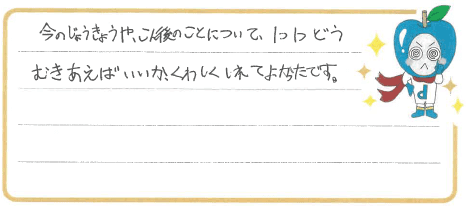 今のじょうきょうや、こん後のことについて、1つ1つどう
むきあえばいいか、くわしくしれてよかったです。
d